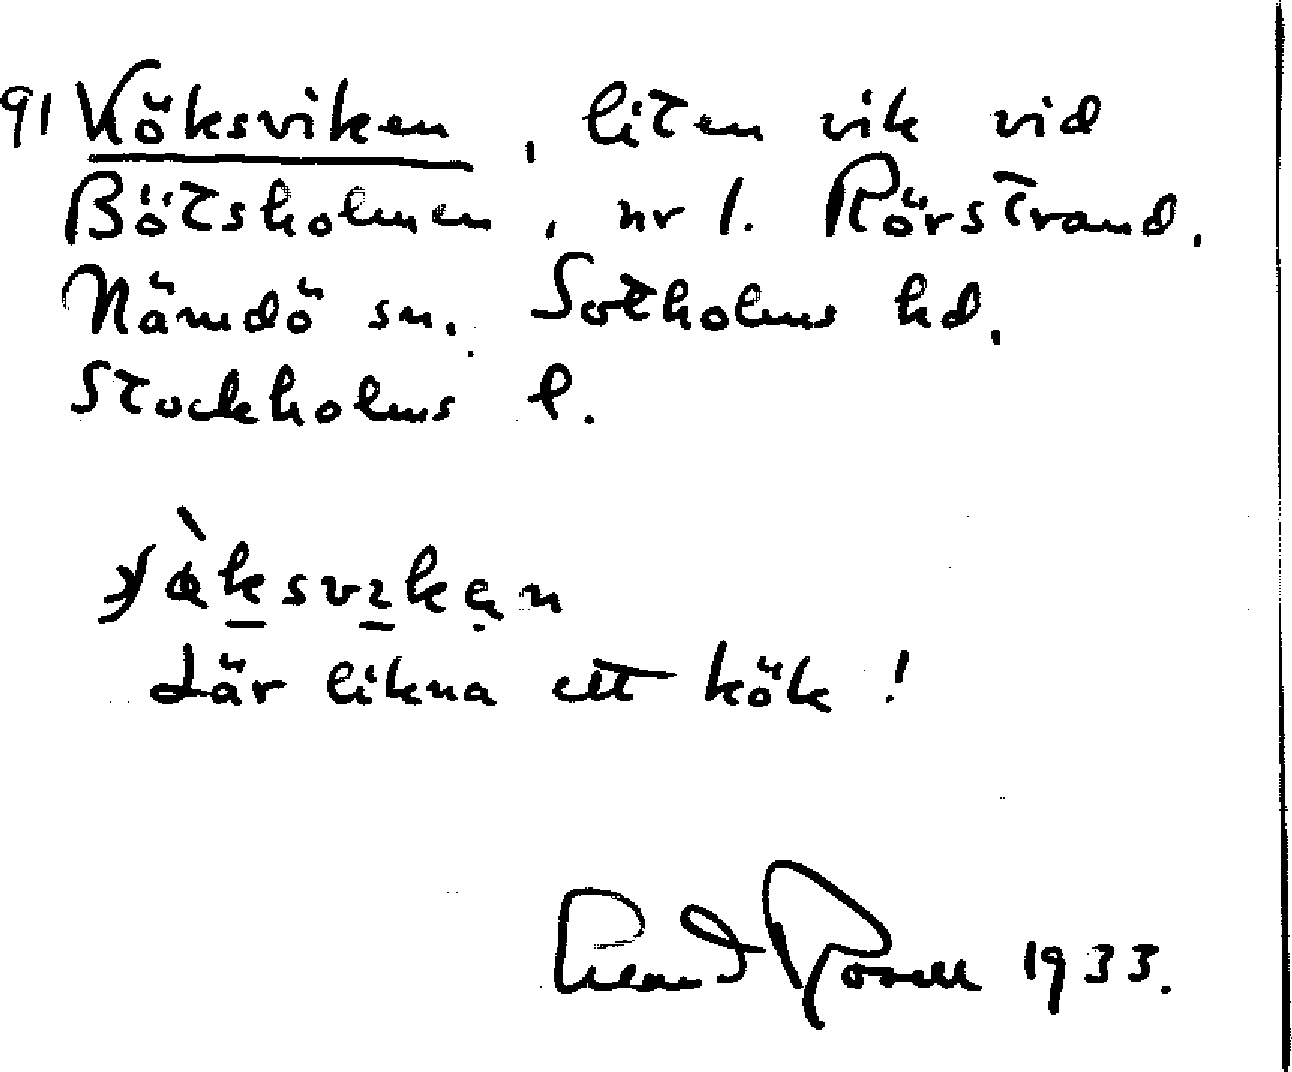 91 Köksviken, liten vik vid
Bötsholmen, nr 1. Rörstrand,
Nämdö sn. Sotholms hd,
Stockholms l.
Lär likna ett kök!
1933.